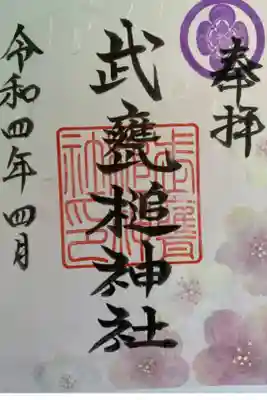 奉拝
武甕槌神社
令和四年四月